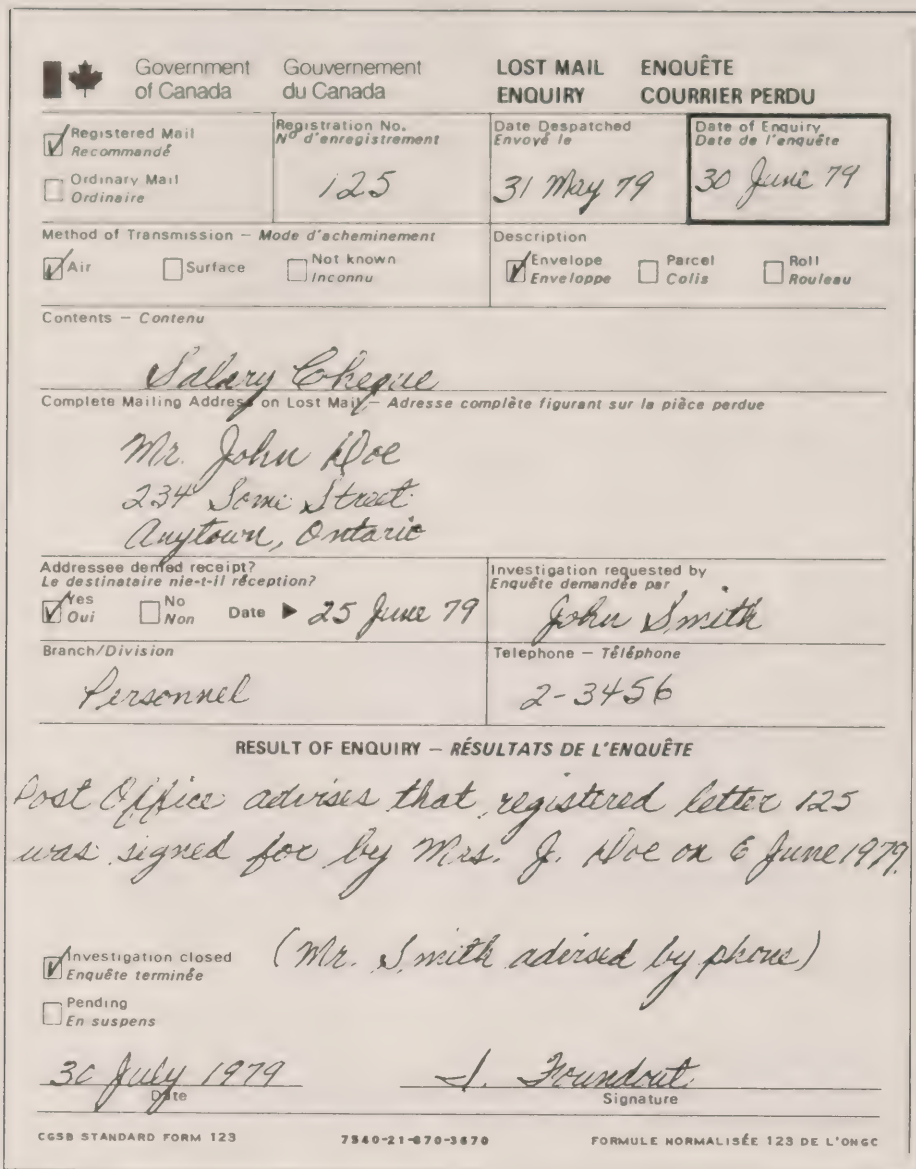 Government of Canada Gouvernement du Canada LOST MAIL ENQUIRY ENQUÊTE COURRIER PERDU
Registered Mail
Recommandé
Ordinary Mail
Ordinaire
Registration No.
Nº d'enregistrement
125
Date Despatched
Envoyé le
31 May 79
Date of Enquiry
Date de l'enquête
30 June 79
Method of Transmission – Mode d'acheminement
Air Surface Not known
Inconnu
Description
Envelope
Enveloppe
Parcel
Colis
Roll
Rouleau
Contents – Contenu
Salary Cheque
Complete Mailing Address on Lost Mail – Adresse complète figurant sur la pièce perdue
Mr. John Doe
234 Some Street
Anytown, Ontario
Addressee denied receipt?
Le destinataire nie-t-il réception?
Yes
Oui
No
Non
Date ▶ 25 June 79
Investigation requested by
Enquête demandée par
John Smith
Branch/Division
Personnel
Telephone – Téléphone
2-3456
RESULT OF ENQUIRY – RÉSULTATS DE L'ENQUÊTE
Post Office advises that registered letter 125
was signed for by Mrs. J. Doe on 6 June 1979.
Investigation closed
Enquête terminée
(Mr. Smith advised by phone)
Pending
En suspens
30 July 1979
Date
I. Foundout
Signature
CGSB STANDARD FORM 123 7540-21-870-3670 FORMULE NORMALISÉE 123 DE L'ONGC